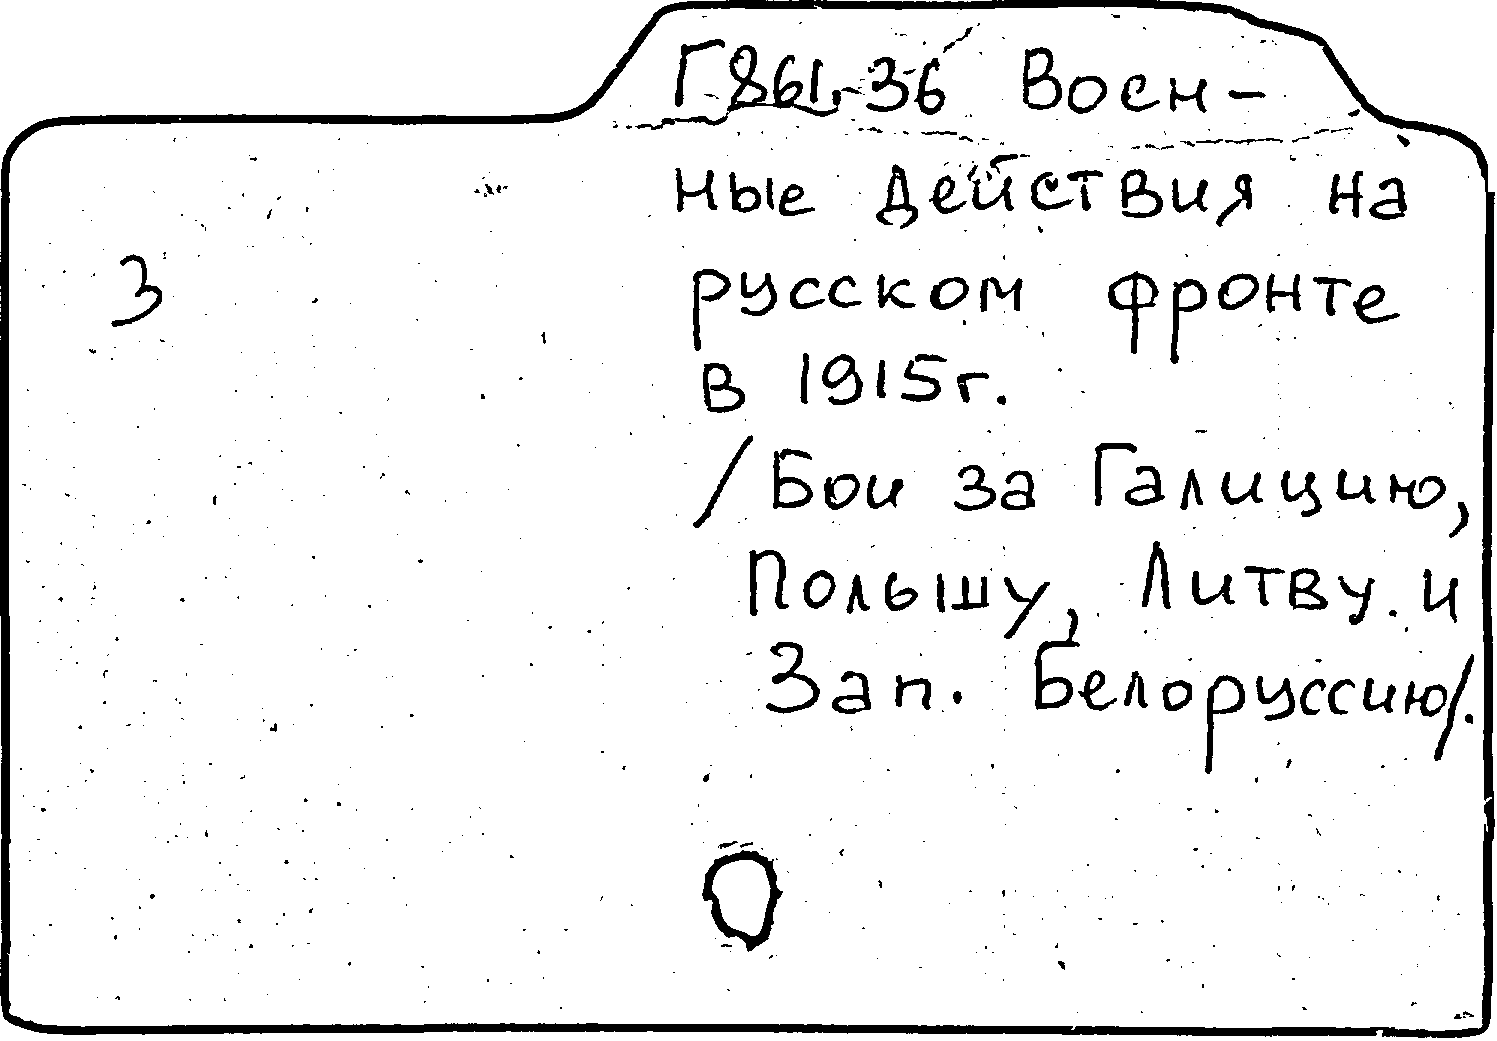 Г861-36 Воен-
ные действия на
3
русском фронте
в 1915г.
/Бои за Галицию,
Польшу, Литву и
Зап. Белоруссию/.